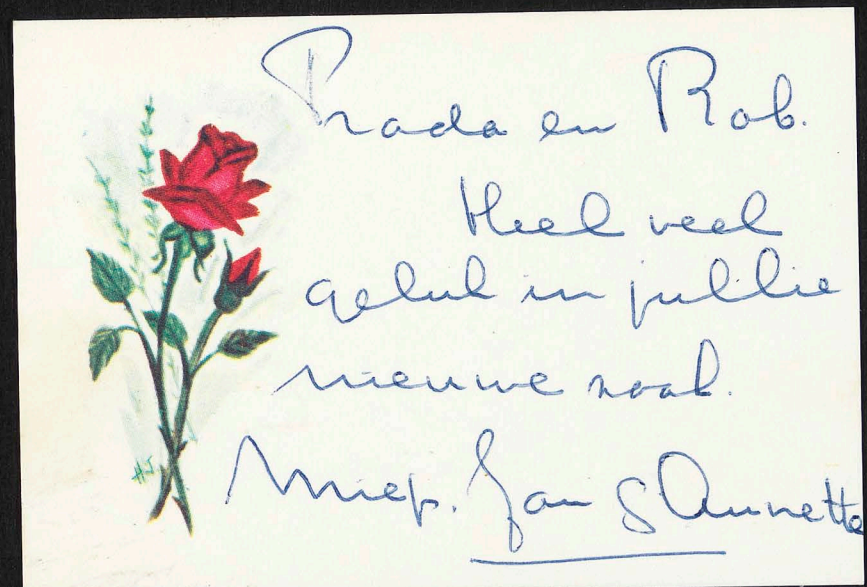 Prada en Rob.
Heel veel
geluk in jullie
nieuwe zaak.
Miep. Jan & Annette
H.J.